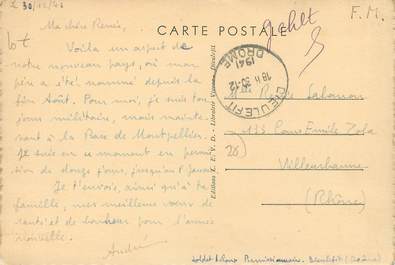 le 30/12/41
CARTE POSTALE
F. M.
Ma chère Renée,
Voilà un aspect de
notre nouveau pays, où mon
père a été nommé depuis la
fin Août. Pour moi, je suis tou
jours militaire, mais mainte
nant à la Base de Montpellier.
Je suis en ce moment en permis
sion de douze jours, jusqu'au 8 Janvier
Je t'envoie, ainsi qu'à ta
famille, mes meilleurs vœux de
santé et de bonheur pour l'année
nouvelle.
André
DIEULEFIT
18 h 30-12
1941
DRÔME
Renée
133 Cours Emile Zola
Villeurbanne
(Rhône)
Editions C. E. V. D. - Librairie Dieulefit
Soldat Permissionnaire. Dieulefit (Drôme)